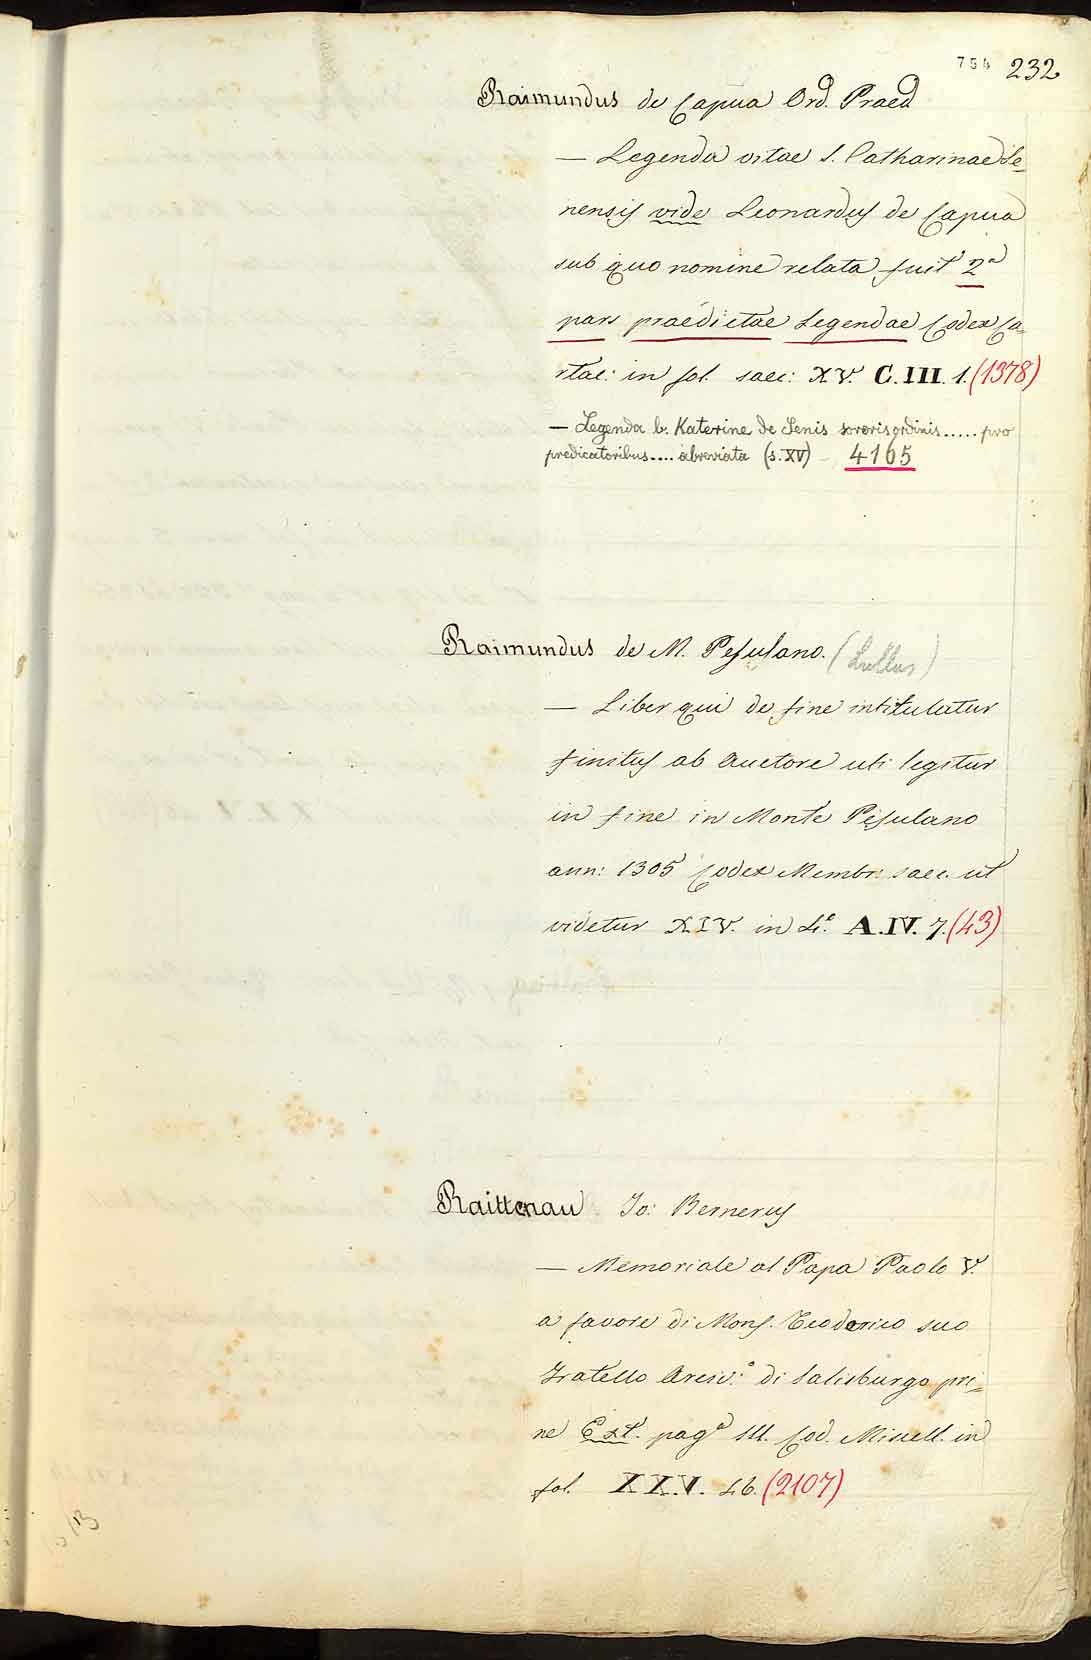 754 232
Raimundus de Capua Ord. Praed
— Legenda vitae S. Catharinae Se=
nensis vide Leonardus de Capua
sub quo nomine relata fuit 2ª
pars praedictae Legendae Codex Ca=
rtac: in fol. saec: XV. C.III. 1. (1378)
— Legenda b. Katerine de Senis sororis ordinis ..... pro
predicatoribus .... abreviata (s. XV) – 4165
Raimundus de M. Pesulano. (Lullus)
— Liber qui de fine intitulatur
finitus ab Auctore uti legitur
in fine in Monte Pesulano
ann: 1305 Codex Membr: saec. ut
videtur XIV. in 4.º A.IV. 7. (43)
Raittenau Jo: Bernerus
— Memoriale al Papa Paolo V.
a favore di Mons. Teodorico suo
Fratello Arciv:º di Salisburgo pri=
ne Ext. pagª 111. Cod. Miscell. in
fol. XX.V. 46. (2107)